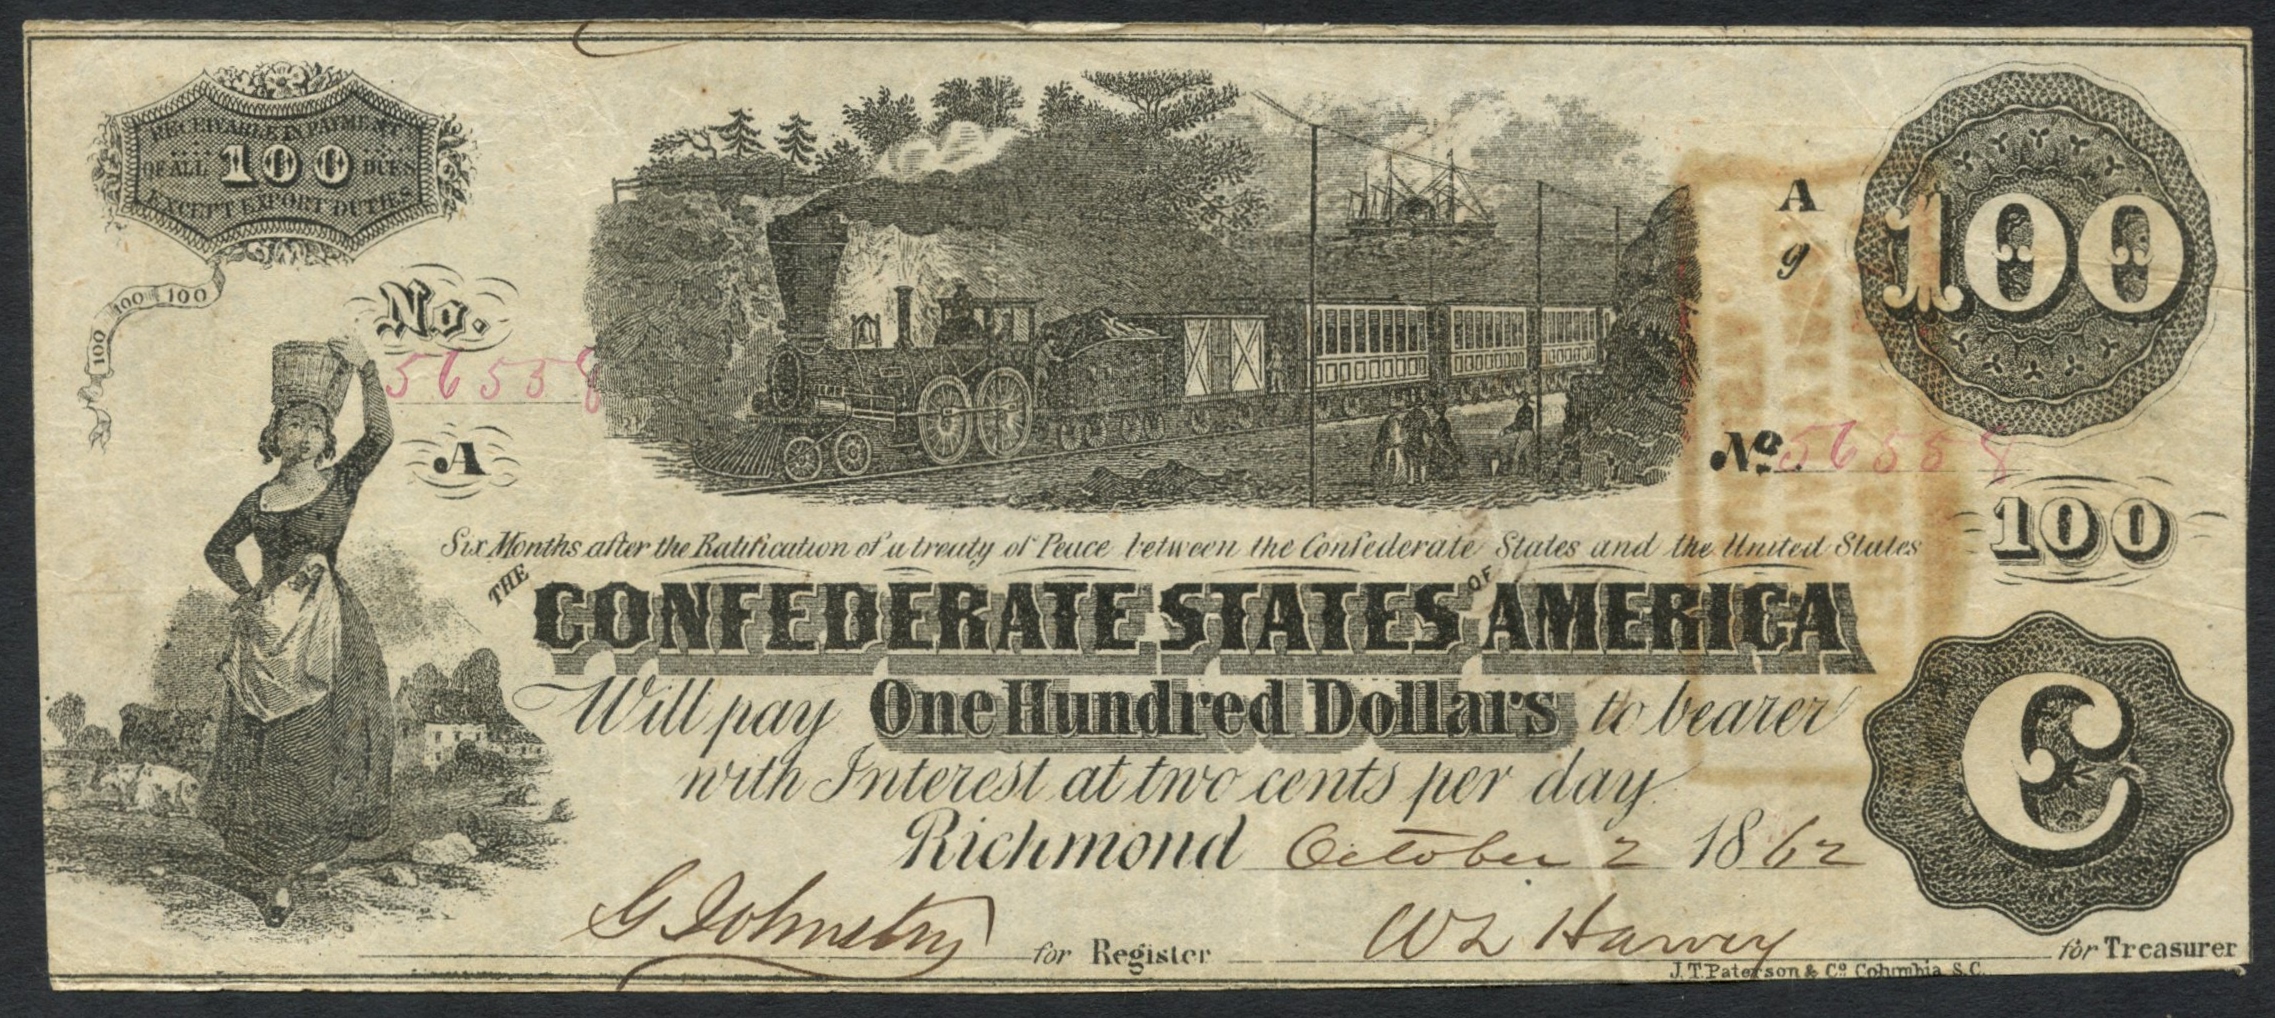 RECEIVABLE IN PAYMENT
OF ALL 100 DUES
EXCEPT EXPORT DUTIES
100 100 100
No.
56558
A
A
g
100
No. 56558
100
Six Months after the Ratification of a treaty of Peace between the Confederate States and the United States
THE CONFEDERATE STATES OF AMERICA
Will pay One Hundred Dollars to bearer
with Interest at two cents per day
Richmond October 2 1862
C
G Johnston for Register
W L Harvey for Treasurer
J.T. Paterson & Co Columbia S.C.